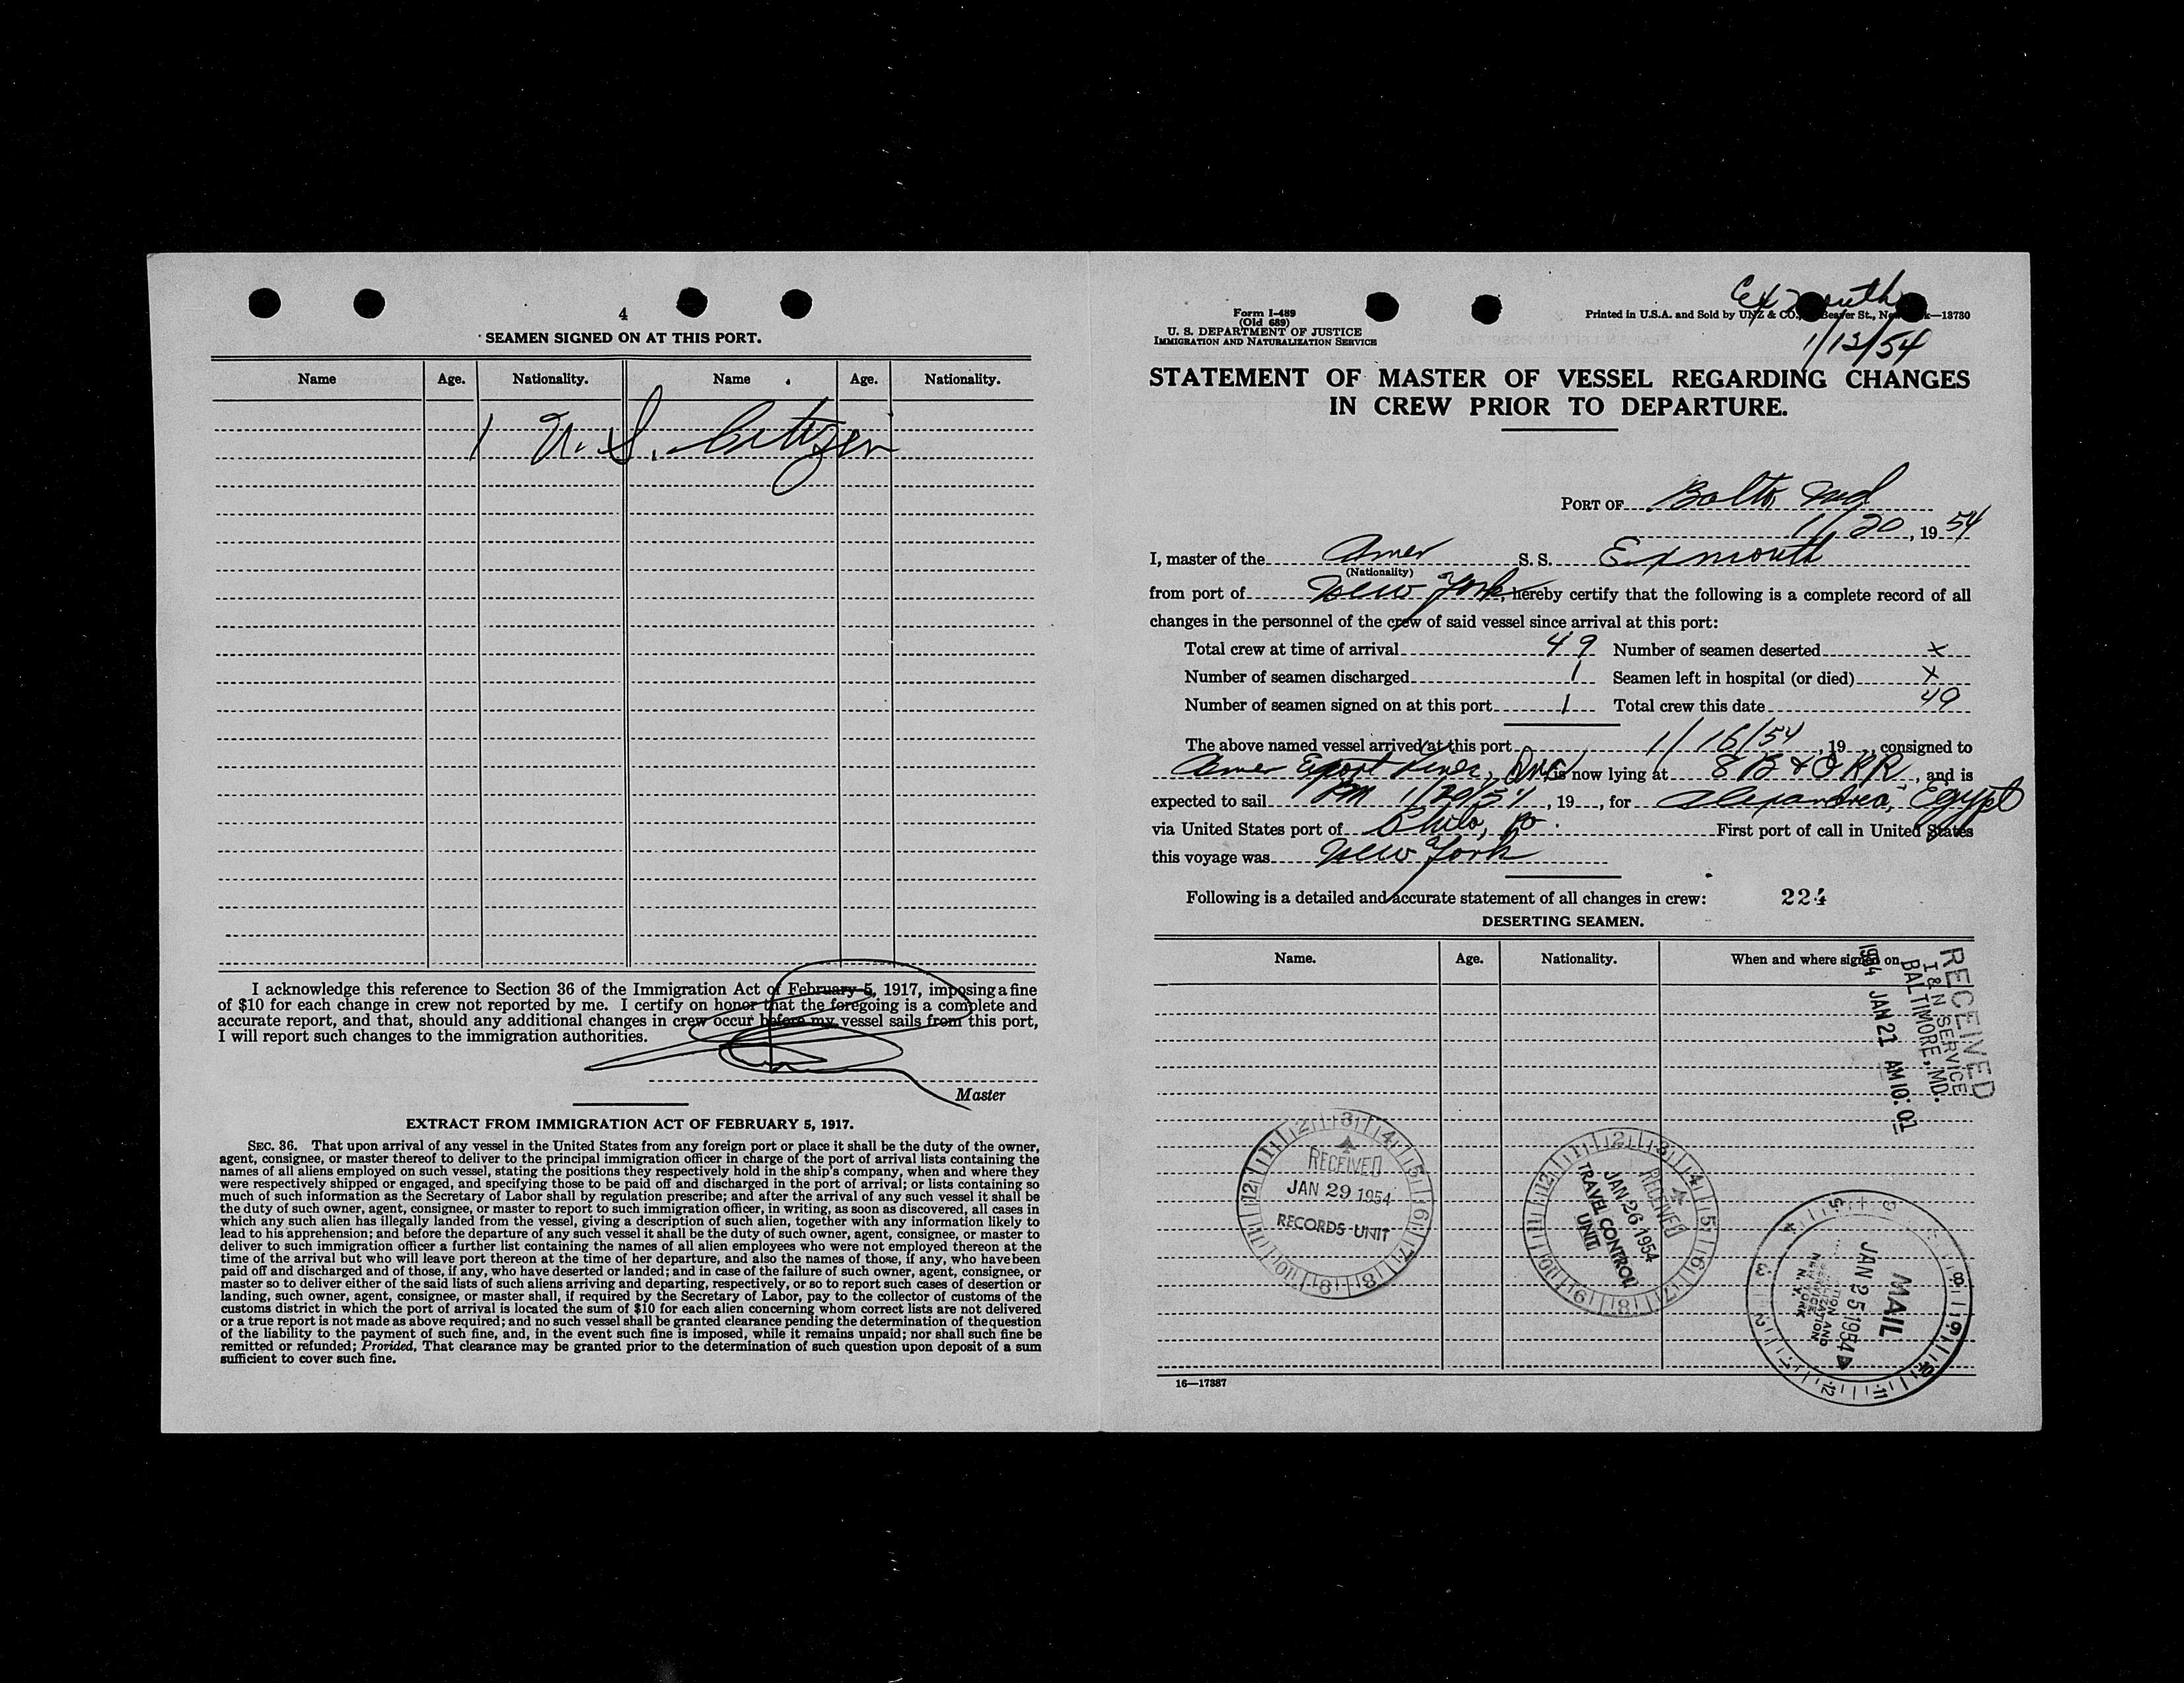 4
SEAMEN SIGNED ON AT THIS PORT.
Name Age. Nationality. Name Age. Nationality.
1 U.S. Citizen
I acknowledge this reference to Section 36 of the Immigration Act of February 5, 1917, imposing a fine
of $10 for each change in crew not reported by me. I certify on honor that the foregoing is a complete and
accurate report, and that, should any additional changes in crew occur before my vessel sails from this port,
I will report such changes to the immigration authorities.
Master
EXTRACT FROM IMMIGRATION ACT OF FEBRUARY 5, 1917.
SEC. 36. That upon arrival of any vessel in the United States from any foreign port or place it shall be the duty of the owner,
agent, consignee, or master thereof to deliver to the principal immigration officer in charge of the port of arrival lists containing the
names of all aliens employed on such vessel, stating the positions they respectively hold in the ship's company, when and where they
were respectively shipped or engaged, and specifying those to be paid off and discharged in the port of arrival; or lists containing so
much of such information as the Secretary of Labor shall by regulation prescribe; and after the arrival of any such vessel it shall be
the duty of such owner, agent, consignee, or master to report to such immigration officer, in writing, as soon as discovered, all cases in
which any such alien has illegally landed from the vessel, giving a description of such alien, together with any information likely to
lead to his apprehension; and before the departure of any such vessel it shall be the duty of such owner, agent, consignee, or master to
deliver to such immigration officer a further list containing the names of all alien employees who were not employed thereon at the
time of the arrival but who will leave port thereon at the time of her departure, and also the names of those, if any, who have been
paid off and discharged and of those, if any, who have deserted or landed; and in case of the failure of such owner, agent, consignee, or
master so to deliver either of the said lists of such aliens arriving and departing, respectively, or so to report such cases of desertion or
landing, such owner, agent, consignee, or master shall, if required by the Secretary of Labor, pay to the collector of customs of the
customs district in which the port of arrival is located the sum of $10 for each alien concerning whom correct lists are not delivered
or a true report is not made as above required; and no such vessel shall be granted clearance pending the determination of the question
of the liability to the payment of such fine, and, in the event such fine is imposed, while it remains unpaid; nor shall such fine be
remitted or refunded; Provided, That clearance may be granted prior to the determination of such question upon deposit of a sum
sufficient to cover such fine.
Form I-489
(Old 689)
U. S. DEPARTMENT OF JUSTICE
IMMIGRATION AND NATURALIZATION SERVICE
Exmouth
Printed in U.S.A. and Sold by UNZ & CO., Beaver St., New York—13730
1/13/54
STATEMENT OF MASTER OF VESSEL REGARDING CHANGES
IN CREW PRIOR TO DEPARTURE.
PORT OF Balto, Md
1/20, 1954
I, master of the Amer S. S. Exmouth
(Nationality)
from port of New York, hereby certify that the following is a complete record of all
changes in the personnel of the crew of said vessel since arrival at this port:
Total crew at time of arrival 49 Number of seamen deserted x
Number of seamen discharged 1 Seamen left in hospital (or died) x
Number of seamen signed on at this port 1 Total crew this date 49
The above named vessel arrived at this port 1/16/54, 19, consigned to
Amer Export Lines, Inc is now lying at 8 B & O RR, and is
expected to sail PM 1/20/54, 19, for Alexandria, Egypt
via United States port of Phila, Pa. First port of call in United States
this voyage was New York
Following is a detailed and accurate statement of all changes in crew: 224
DESERTING SEAMEN.
Name. Age. Nationality. When and where signed on.
RECEIVED
I & N SERVICE
BALTIMORE, MD.
1954 JAN 21 AM 10:01
RECEIVED
JAN 29 1954
RECORDS UNIT
RECEIVED
JAN 26 1954
TRAVEL CONTROL
UNIT
MAIL
JAN 25 1954
NEW YORK
N. Y.
16—17387